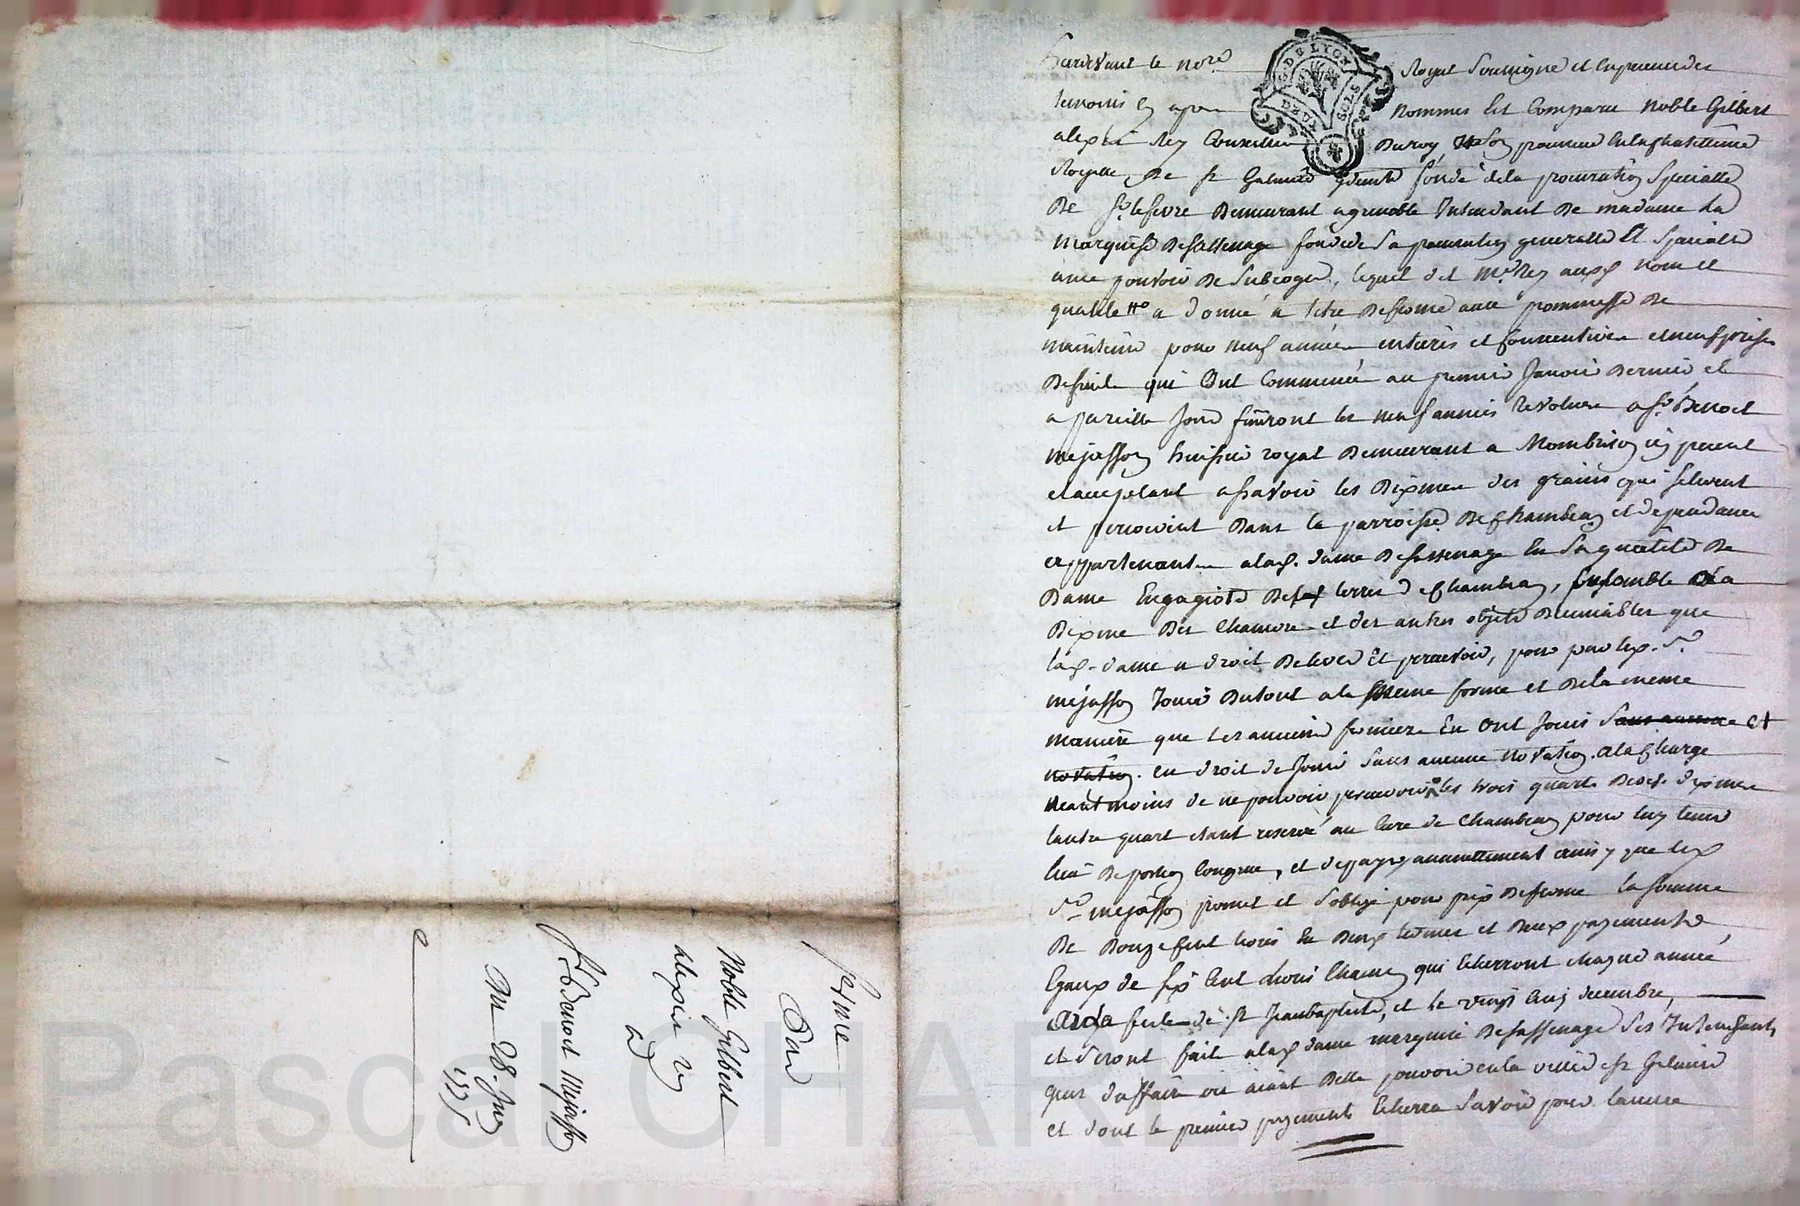 ferme
Par
Noble Gilbert
alexis Rey
a
Sr. Benoit Mejasson
Du 28. Juin
1775
Pardevant le nore Royal Soussigné et en presence des
temoins cy apres nommés Est Comparu Noble Gilbert
alexis Rey Conseiller Du roy & son procureur en la Chatellenie
Royalle De st Galmier fondé de la procuration Specialle
De Sr. lefevre Demeurant a grenoble Intendant De madame La
marquise Desassenage fondé de Sa procuration generalle Et Specialle
avec pouvoir De Subroger, lequel dit Me. Rey auxd. nom et
qualité a donné a titre De ferme avec promesse De
maintenir pour neuf années entieres et Consecutives et neuf prises
De suite qui Ont Commencé au premier Janvier Dernier et
a pareille Jour finiront les neuf années revolues a Sr. Benoit
mejasson huissier royal Demeurant a Montbrison icy present
et acceptant a savoir les Dixmes des grains qui se levent
et percoivent Dans la parroisse De Chambeon et dependances
appartenantes a lad. dame De sassenage En Sa qualité De
Dame Engagiste De la terre de Chambeon, Ensemble La
Dixme Des Chanvres et des autres objets Decimables que
lad. dame a droit De lever Et percevoir, pour par led. Sr.
mejasson Jouir Du tout a la meme forme et De la meme
maniere que les anciens fermiers En Ont Joui Sans aucune et
novation. en droit de Jouir Sans aucune novation. a la Charge
neantmoins de ne pouvoir percevoir que les trois quarts Desd. dixmes
lautre quart etant reservé au Curé de Chambeon pour luy tenir
lieu De portion Congrue, et de payer annuellement ainsy que led.
Sr. mejasson promet et Soblige pour prix De ferme la somme
De Douze Cent livres En Deux termes et Deux payements
Egaux de six Cent livres Chacun qui Echerront chaque année,
a la feste de st Jean baptiste, et le vingt Cinq decembre,
et Seront fait a lad dame marquise De sassenage Ses
gens daffaire ou aiant Delle pouvoir en la ville de st Galmier
et dont le premier payement Echerra Savoir pour lannée
G. DE LYON
DEUX SOLS
Pascal CHAR